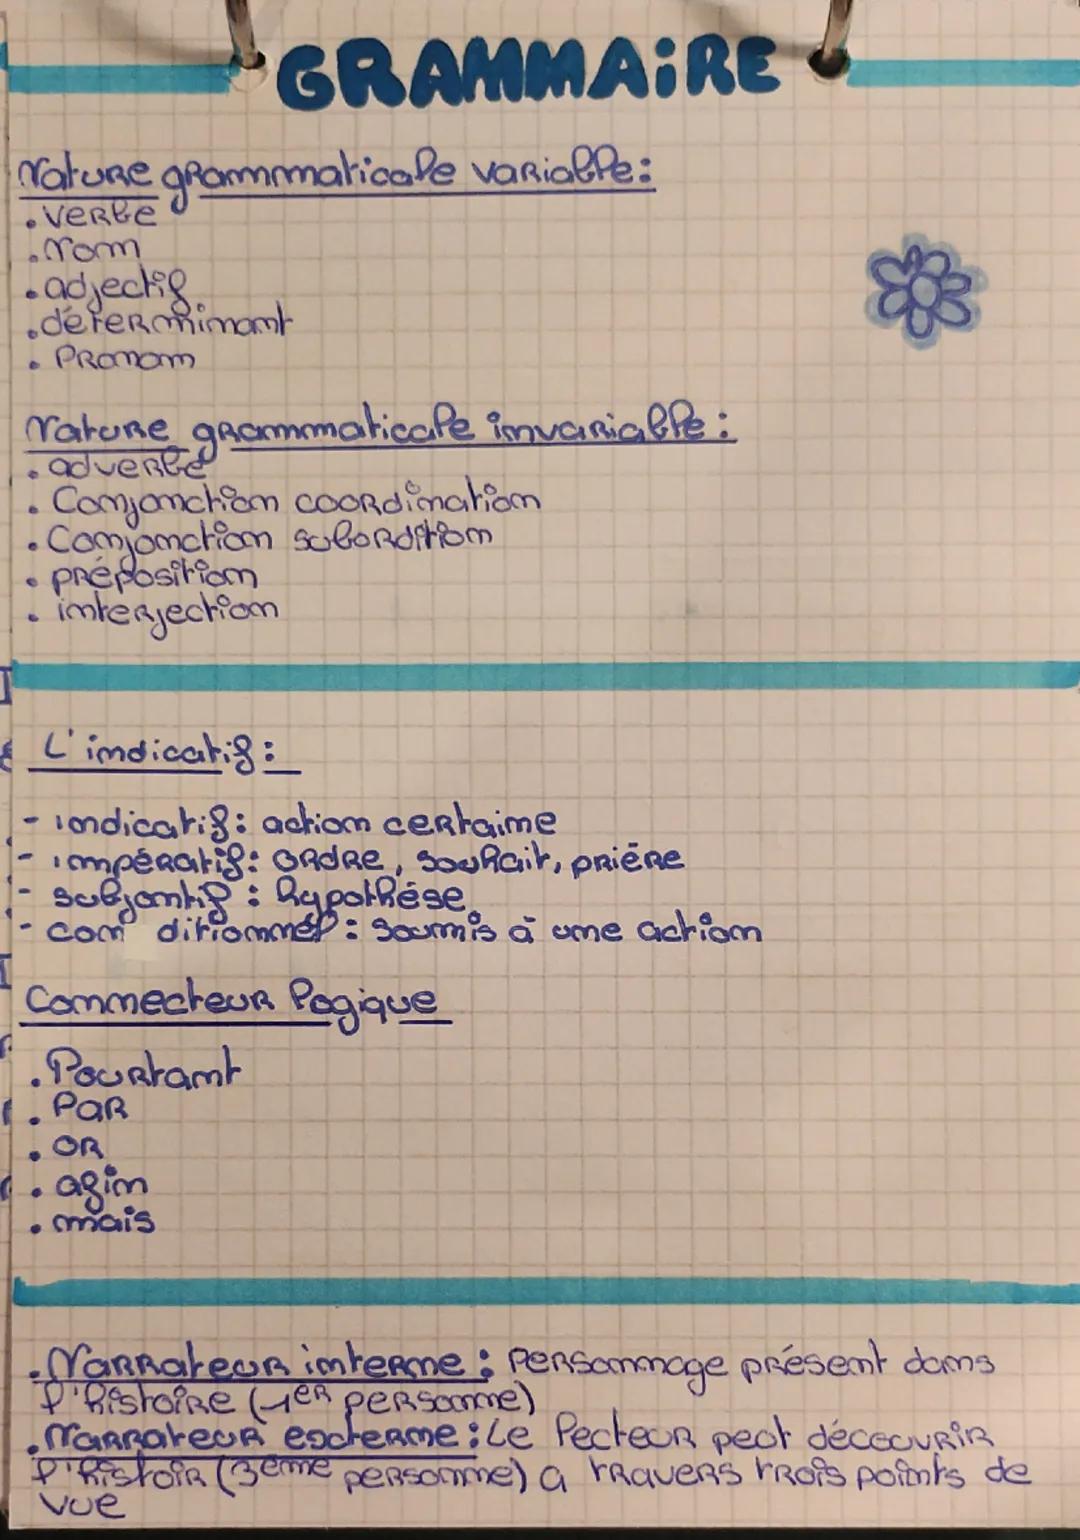 GRAMMAiRE
Nature grammmaticale variable:
. verbe
. nom
. adjectif
. déterminant
. Pronom
Nature grammmaticale invariable :
. adverbe
. Conjonction coordination
. Conjonction subordition
. préposition
. interjection
L'indicatif :
- indicatif : action certaine
- impératif : ordre, souhait, prière
- subjontif : hypothése
- con ditionnel : soumis à une action
Connecteur logique
. Pourtant
. Par
. OR
. afin
. mais
. Narrateur interne : personnage présent dans
l'histoire (1er personne)
. Narrateur externe : Le lecteur peot décovrir
l'histoir (3eme personne) a travers trois points de
vue